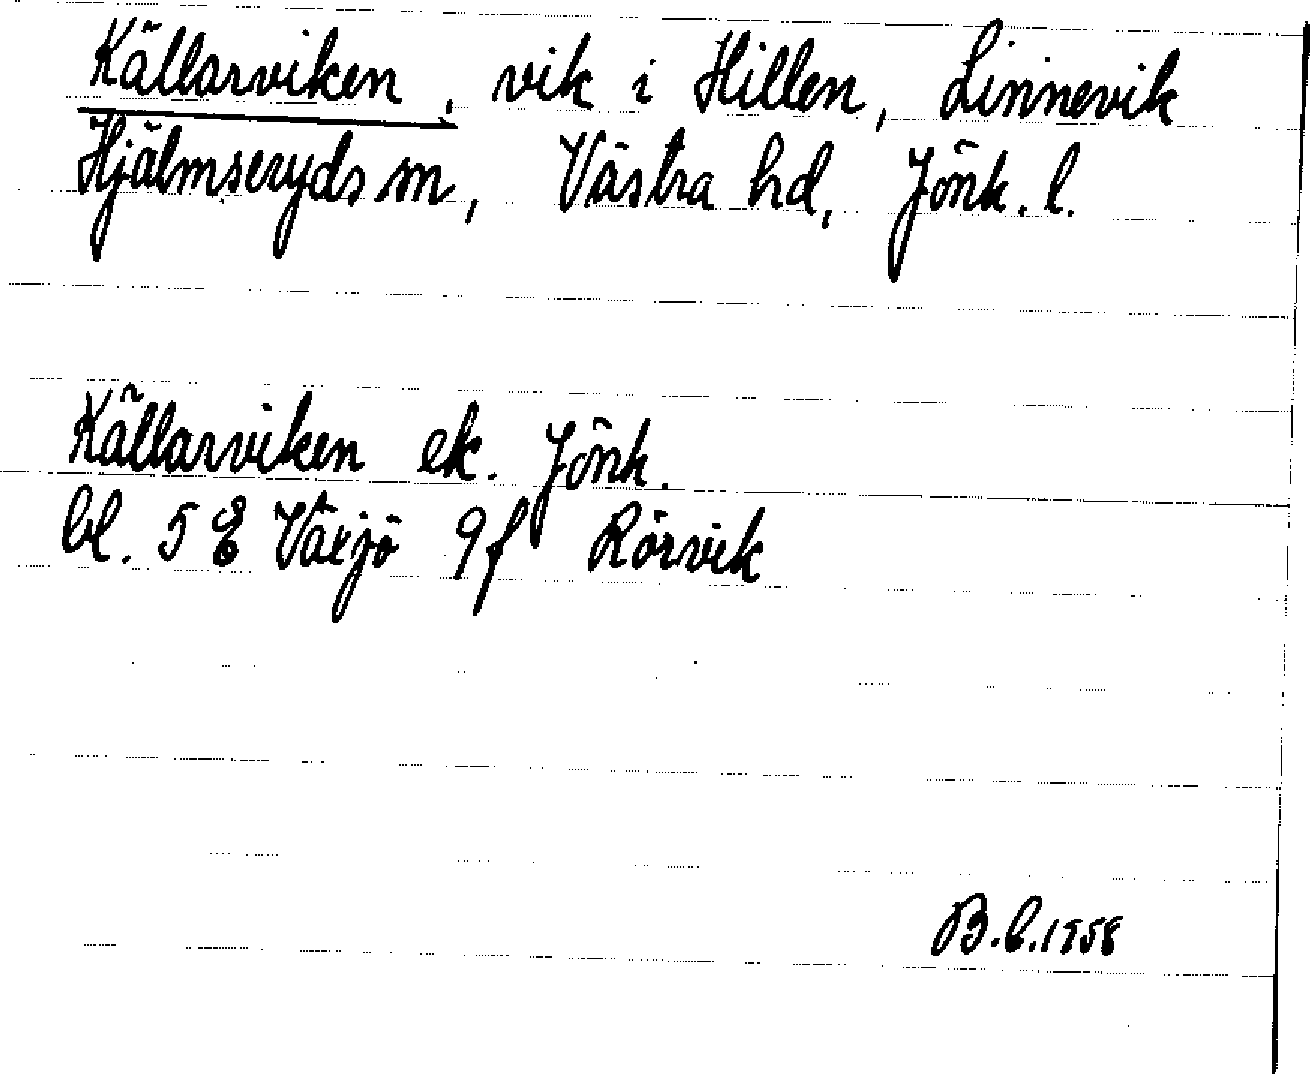 Källarviken, vik i Hillen, Linnevik
Hjälmseryds sn, Västra hd, Jönk. l.
Källarviken ek. Jönk.
bl. 5 E Växjö 9f Rörvik
B.C. 1958